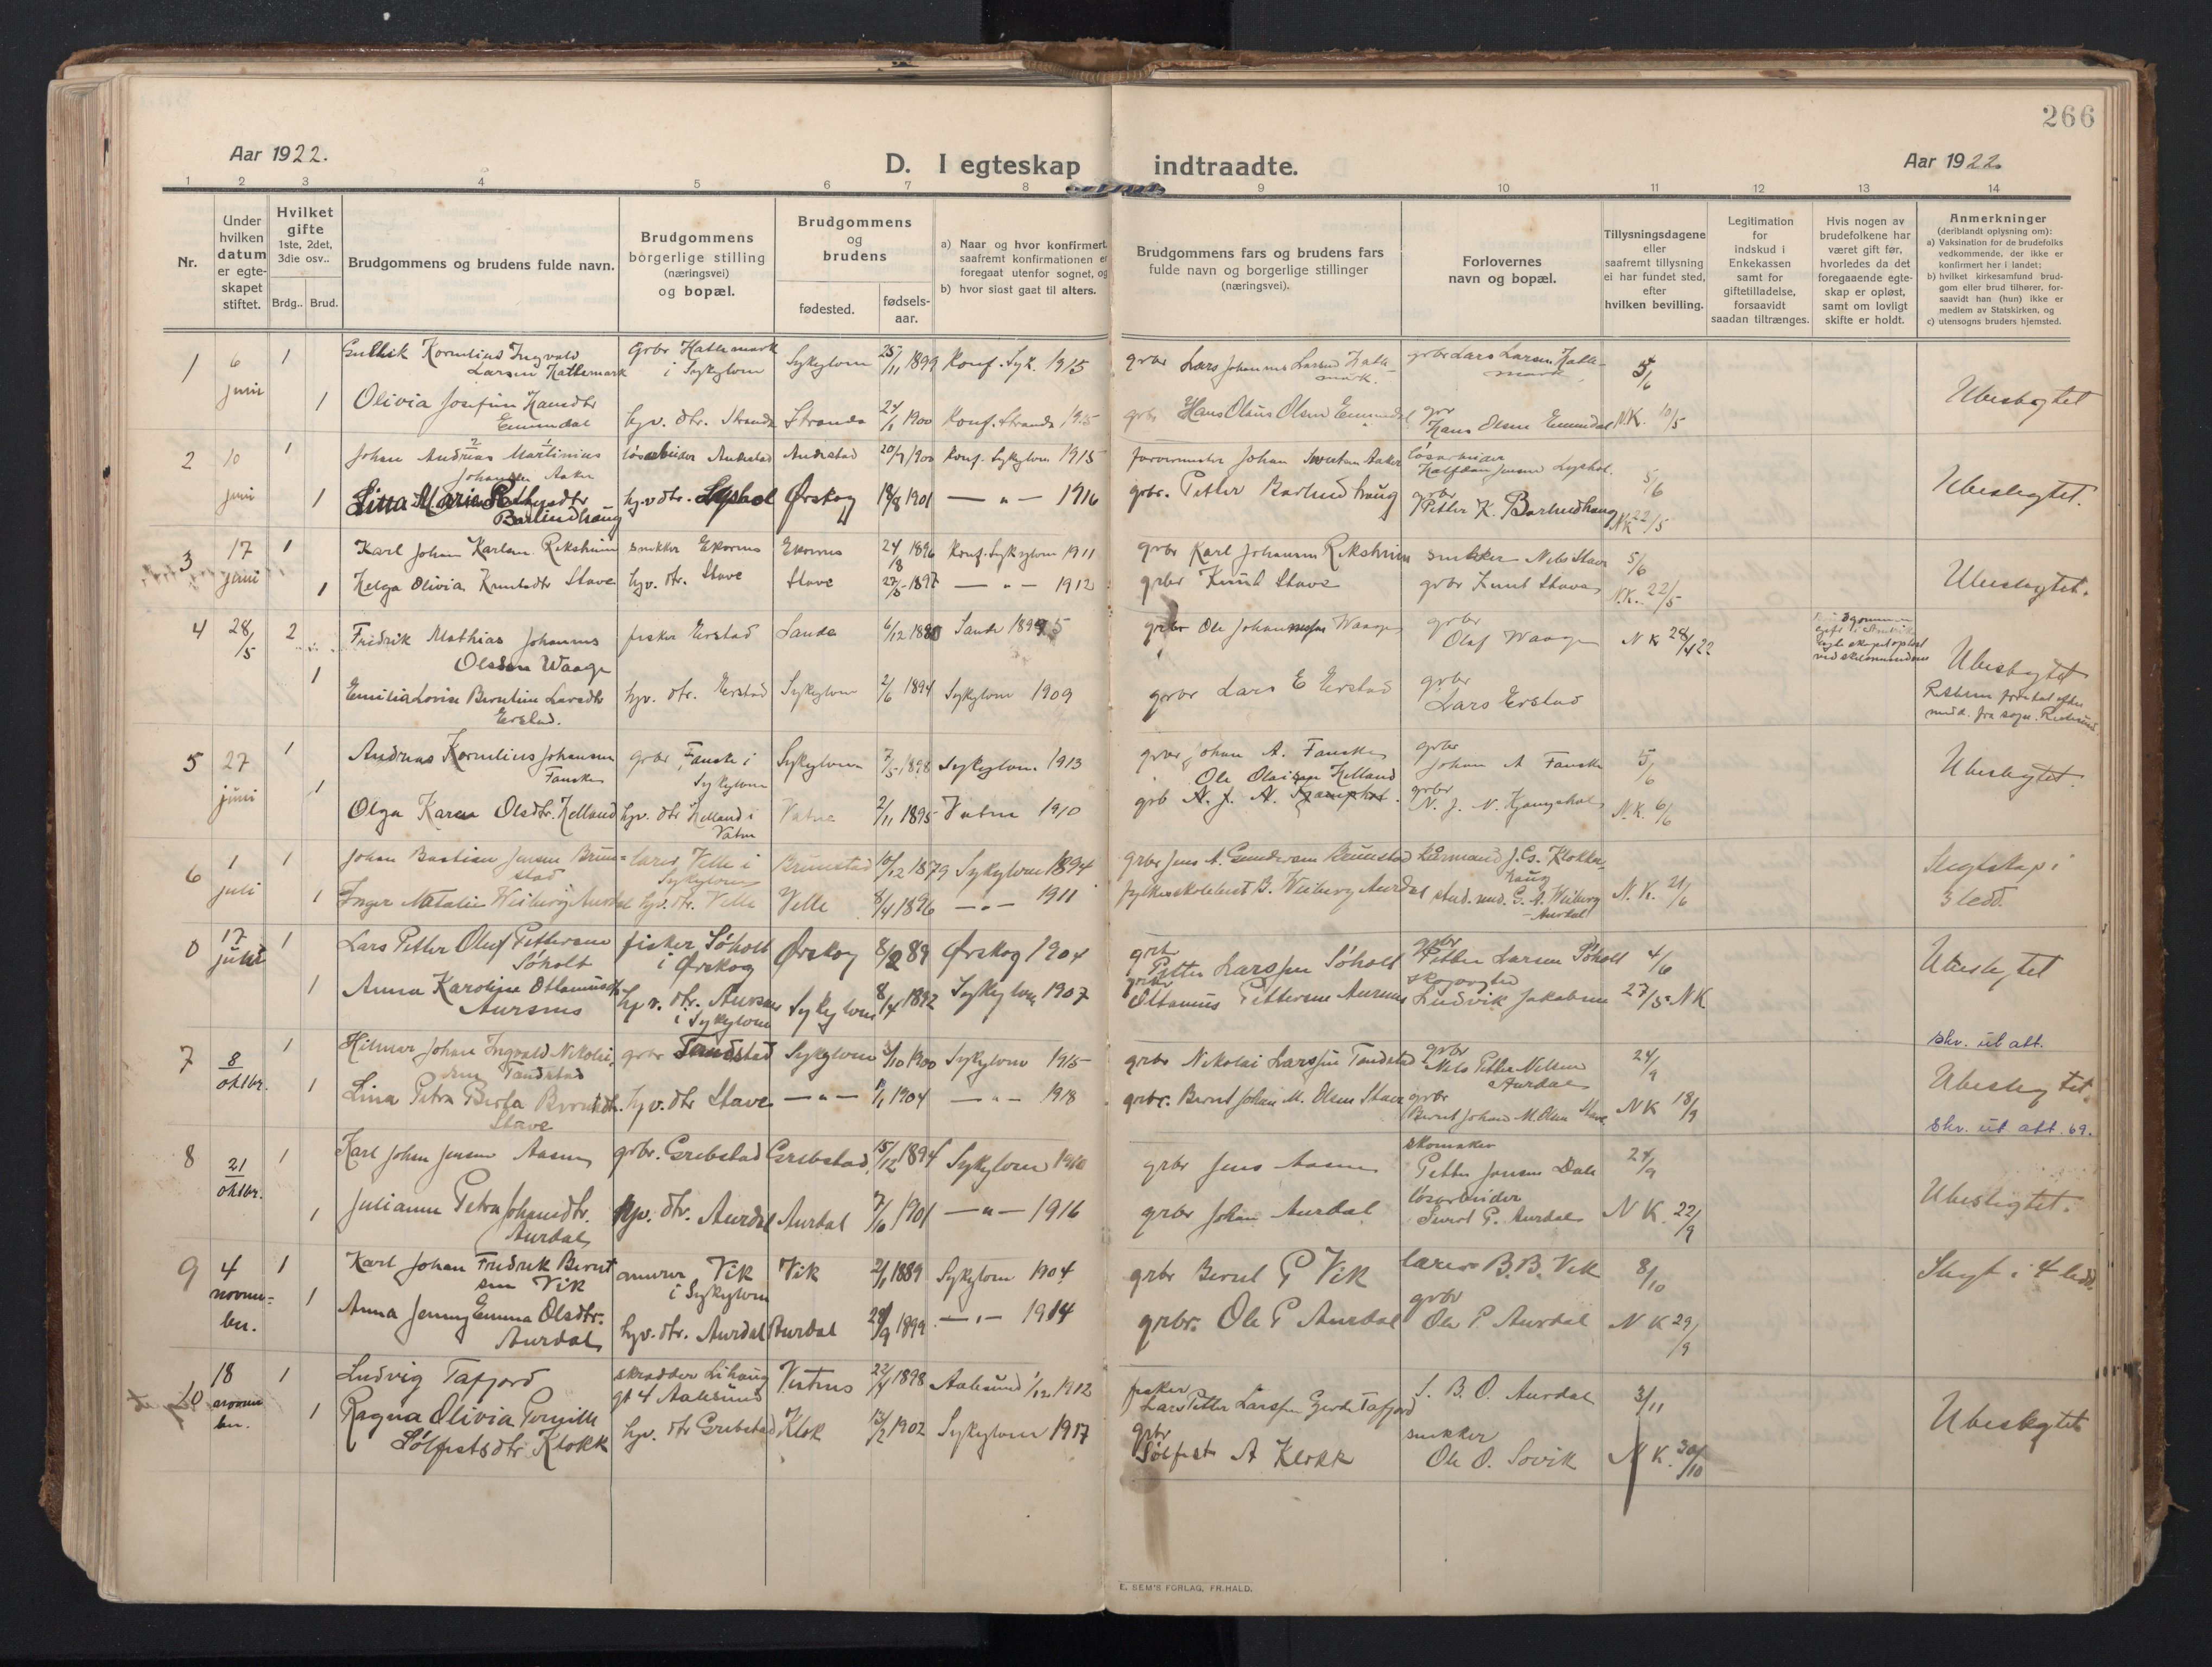 266
Aar 1922.
D. I egteskap indtraadte.
Aar 1922
1 2 3 4 5 6 7 8 9 10 11 12 13 14
Nr.
Under hvilken datum er egteskapet stiftet.
Hvilket gifte 1ste, 2det, 3die osv..
Brdg.. Brud.
Brudgommens og brudens fulde navn.
Brudgommens borgerlige stilling (næringsvei) og bopæl.
Brudgommens og brudens
fødested.
fødsels-aar.
a) Naar og hvor konfirmert, saafremt konfirmationen er foregaat utenfor sognet, og
b) hvor sidst gaat til alters.
Brudgommens fars og brudens fars fulde navn og borgerlige stillinger (næringsvei).
Forlovernes navn og bopæl.
Tillysningsdagene eller saafremt tillysning ei har fundet sted, efter hvilken bevilling.
Legitimation for indskud i Enkekassen samt for giftetilladelse, forsaavidt saadan tiltrænges.
Hvis nogen av brudefolkene har været gift før, hvorledes da det foregaaende egteskap er opløst, samt om lovligt skifte er holdt.
Anmerkninger (deriblandt oplysning om):
a) Vaksination for de brudefolks vedkommende, der ikke er konfirmert her i landet;
b) hvilket kirkesamfund brudgom eller brud tilhører, forsaavidt han (hun) ikke er medlem av Statskirken, og
c) utensogns bruders hjemsted.
1 6 juni 1 Kornelius Ingvald Larsen Hattemark grbr Hattemark i Sykylven Sykylven 25/11 1899 Konf. Syk. 1915 grbr Lars Johannes Larsen Hattemark. grbr Lars Larsen Hattemark 5/6
1 Olivia Josefine Hansdtr Emmdal hjv. dtr. Stranda Stranda 24/1 1900 Konf. Stranda 1915 grbr Hans Olaus Olsen Hans Olsen N.K. 10/5 Ubeslegtet
2 10 juni 1 Johan Andreas Martinius Johansen Aaker løsarbeider Andestad 20/7 1900 Konf. Sykylven 1915 Johan Aaker løsarbeider Halfdan Jensen Lyshol. 5/6
1 Maria Barlindhaug hjv. dtr. Lyshol Ørskog 18/8 1901 — " — 1916 grbr. Petter Barlindhaug grbr Petter K. Barlindhaug N.K. 22/5 Ubeslegtet.
3 17 juni 1 Karl Johan Karlsen Rekshun snekker Ekornes Ekornes 24/8 1896 Konf. Sykylven 1911 grbr Karl Johansen snekker Nils Stave 5/6
1 Helga Olivia Knutsdtr Stave hjv. dtr. Stave Stave 27/5 1897 — " — 1912 grbr Knut Stave grbr Knut Stave N.K. 22/5 Ubeslegtet.
4 28/5 2 Fredrik Mathias Johannes Olsen Waage fisker Erstad Sande 6/12 Sande grbr Ole Johannessen Waage grbr Olaf Waage N K 28/4 22
1 Emilia Lovise Berntine Larsdtr Erstad. hjv. dtr. Erstad Sykylven 2/6 1894 Sykylven 1909 grbr Lars E Erstad grbr Lars Erstad Ubeslegtet
5 27 juni 1 Andreas Kornelius Johansen Fauske grbr Fauske i Sykylven Sykylven 7/5 1898 Sykylven 1913 grbr Johan A. Fauske grbr Johan A Fauske 5/6
1 Olga Karen Olsdtr. Helland hjv. dtr Helland i Vatne Vatne 2/11 1895 Vatne 1910 Ole Helland grb grbr N. J. N. N.K. 6/6 Ubeslegtet.
6 1 juli 1 Johan Bastian Jensen Brunstad lærer Velle i Sykylven Brunstad 10/12 1879 Sykylven 1894 grbr Jens A. Gundersen Brunstad J. Es. Klokkerhaug
1 Inger Natalie Weiberg Aurdal hjv. dtr. Velle Velle 8/4 1896 — " — 1911 fylkesskolebest. B. Weiberg Aurdal stud. med. G. A. Weiberg-Aurdal N.K. 21/6 Slegtskap i 3 ledd.
0 17 1 Lars Petter Oluf Pettersen Søholt fisker Søholt i Ørskog Ørskog 8/2 89 Ørskog 1904 grbr Petter Larssen Søholt grbr Petter Larsen Søholt 4/6
1 Anna Karoline Ottamusdtr Aursnes hjv. dtr. Aursnes i Sykylven Sykylven 8/4 1892 Sykylven 1907 grbr Ottamus Pettersen Aursnes skogvogter Ludvik Jakobsen 27/5 NK Ubeslegtet
7 8 oktbr. 1 Hilmar Johan Ingvald Nikolaisen Tandstad grbr Tandstad Sykylven /10 1900 Sykylven 1915 grbr Nikolai Larssen Tandstad grbr Nils Petter Nilsen Aurdal 24/9 skr. ut att.
1 Lina Petra Berta Berntsdtr. Stave hjv. dtr Stave — " — /1 1904 — " — 1918 grbr. Bernt Johan M. Olsen Stave grbr Bernt Johan M. Olsen Stave NK 18/9 Ubeslegtet. skr. ut att. 69.
8 21 oktbr. 1 Karl Johan Jensen Aasen grbr. Grebstad Grebstad 15/12 1894 Sykylven 1910 grbr Jens Aasen skomaker Petter Jensen Dale 24/9
1 Julianne Petra Johansdtr. Aurdal hjv. dtr. Aurdal Aurdal 7/6 1901 — " — 1916 grbr Johan Aurdal løsarbeider Sivert P. Aurdal N K. 22/9 Ubeslegtet.
9 4 november. 1 Karl Johan Fredrik Berntsen Vik murer Vik i Sykylven Vik 2/1 1889 Sykylven 1904 grbr Bernt P Vik lærer B. B. Vik 8/10
1 Anna Jenny Emma Olsdtr. Aurdal hjv. dtr. Aurdal Aurdal /9 1899 — " — 1914 grbr. Ole P Aurdal grbr Ole P. Aurdal N K 29/9 Slegt i 4 ledd.
10 18 november. 1 Ludvig Tafjord skrædder Lihaug gt 4 Aalesund Vestnes 22/4 1898 Aalesund 1/12 1912 fisker Lars Petter Larssen Gjerde Tafjord B. O. Aurdal 3/11
1 Ragna Olivia Pernille Sølfestsdtr Klokk hjv. dtr Grebstad Klok 13/2 1902 Sykylven 1917 grbr Sølfest A Klokk snekker Ole O. Sovik N K. 30/10 Ubeslegtet
E. SEM'S FORLAG, FR.HALD.